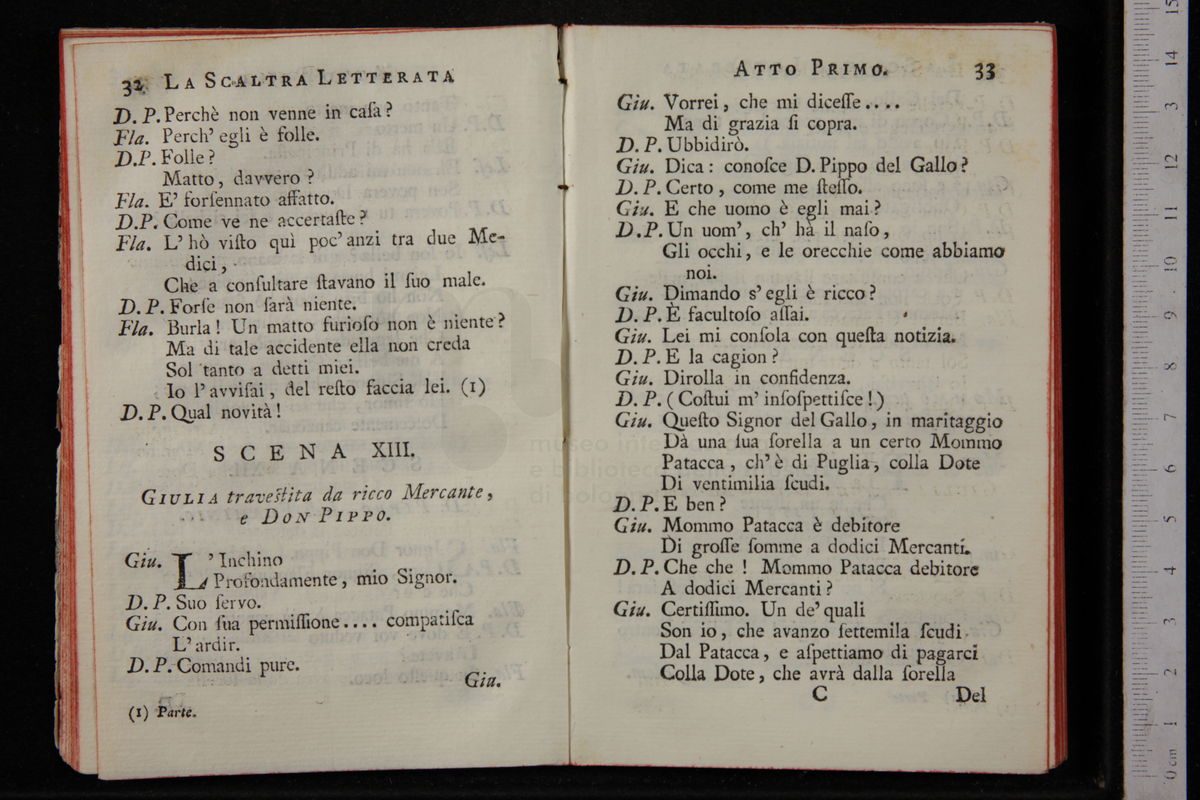 32 LA SCALTRA LETTERATA
D. P. Perchè non venne in caſa?
Fla. Perch' egli è folle.
D.P. Folle?
Matto, davvero?
Fla. E' forſennato affatto.
D.P. Come ve ne accertaſte?
Fla. L' hò viſto quì poc' anzi tra due Me-
dici,
Che a conſultare ſtavano il ſuo male.
D. P. Forſe non ſarà niente.
Fla. Burla! Un matto furioſo non è niente?
Ma di tale accidente ella non creda
Sol tanto a detti miei.
Io l' avviſai, del reſto faccia lei. (1)
D. P. Qual novità!
SCENA XIII.
GIULIA traveſtita da ricco Mercante,
e DON PIPPO.
Giu. L' Inchino
Profondamente, mio Signor.
D. P. Suo ſervo.
Giu. Con ſua permiſſione.... compatiſca
L' ardir.
D. P. Comandi pure.
Giu.
(1) Parte.
ATTO PRIMO. 33
Giu. Vorrei, che mi diceſſe....
Ma di grazia ſi copra.
D. P. Ubbidirò.
Giu. Dica: conoſce D. Pippo del Gallo?
D. P. Certo, come me ſteſſo.
Giu. E che uomo è egli mai?
D. P. Un uom', ch' hà il naſo,
Gli occhi, e le orecchie come abbiamo
noi.
Giu. Dimando s' egli è ricco?
D. P. E facultoſo aſſai.
Giu. Lei mi conſola con queſta notizia.
D. P. E la cagion?
Giu. Dirolla in confidenza.
D. P. (Coſtui m' inſoſpettiſce!)
Giu. Queſto Signor del Gallo, in maritaggio
Dà una ſua ſorella a un certo Mommo
Patacca, ch' è di Puglia, colla Dote
Di ventimilia ſcudi.
D. P. E ben?
Giu. Mommo Patacca è debitore
Di groſſe ſomme a dodici Mercanti.
D. P. Che che! Mommo Patacca debitore
A dodici Mercanti?
Giu. Certiſſimo. Un de' quali
Son io, che avanzo ſettemila ſcudi
Dal Patacca, e aſpettiamo di pagarci
Colla Dote, che avrà dalla ſorella
C Del